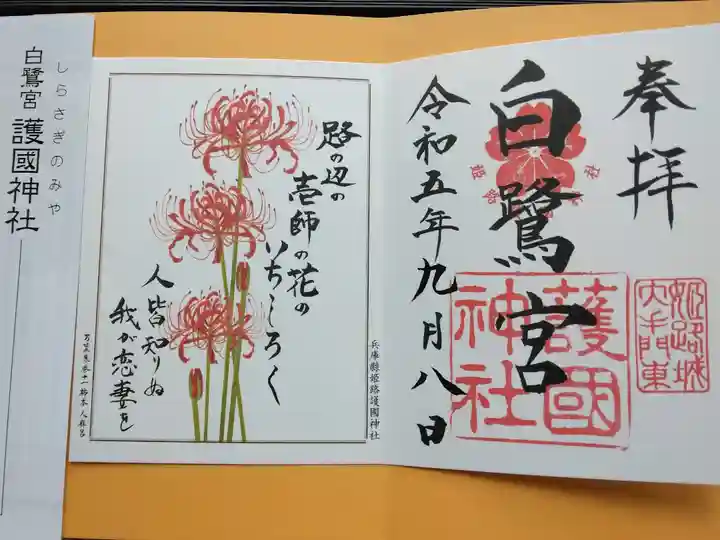 奉拝
白鷺宮
令和五年九月八日
姫路城
大手門東
護國
神社
路の辺の
壱師の花の
いちしろく
人皆知りぬ
我が恋妻を
兵庫縣姫路護國神社
万葉集巻十一 柿本人麻呂
しらさぎのみや
白鷺宮 護國神社